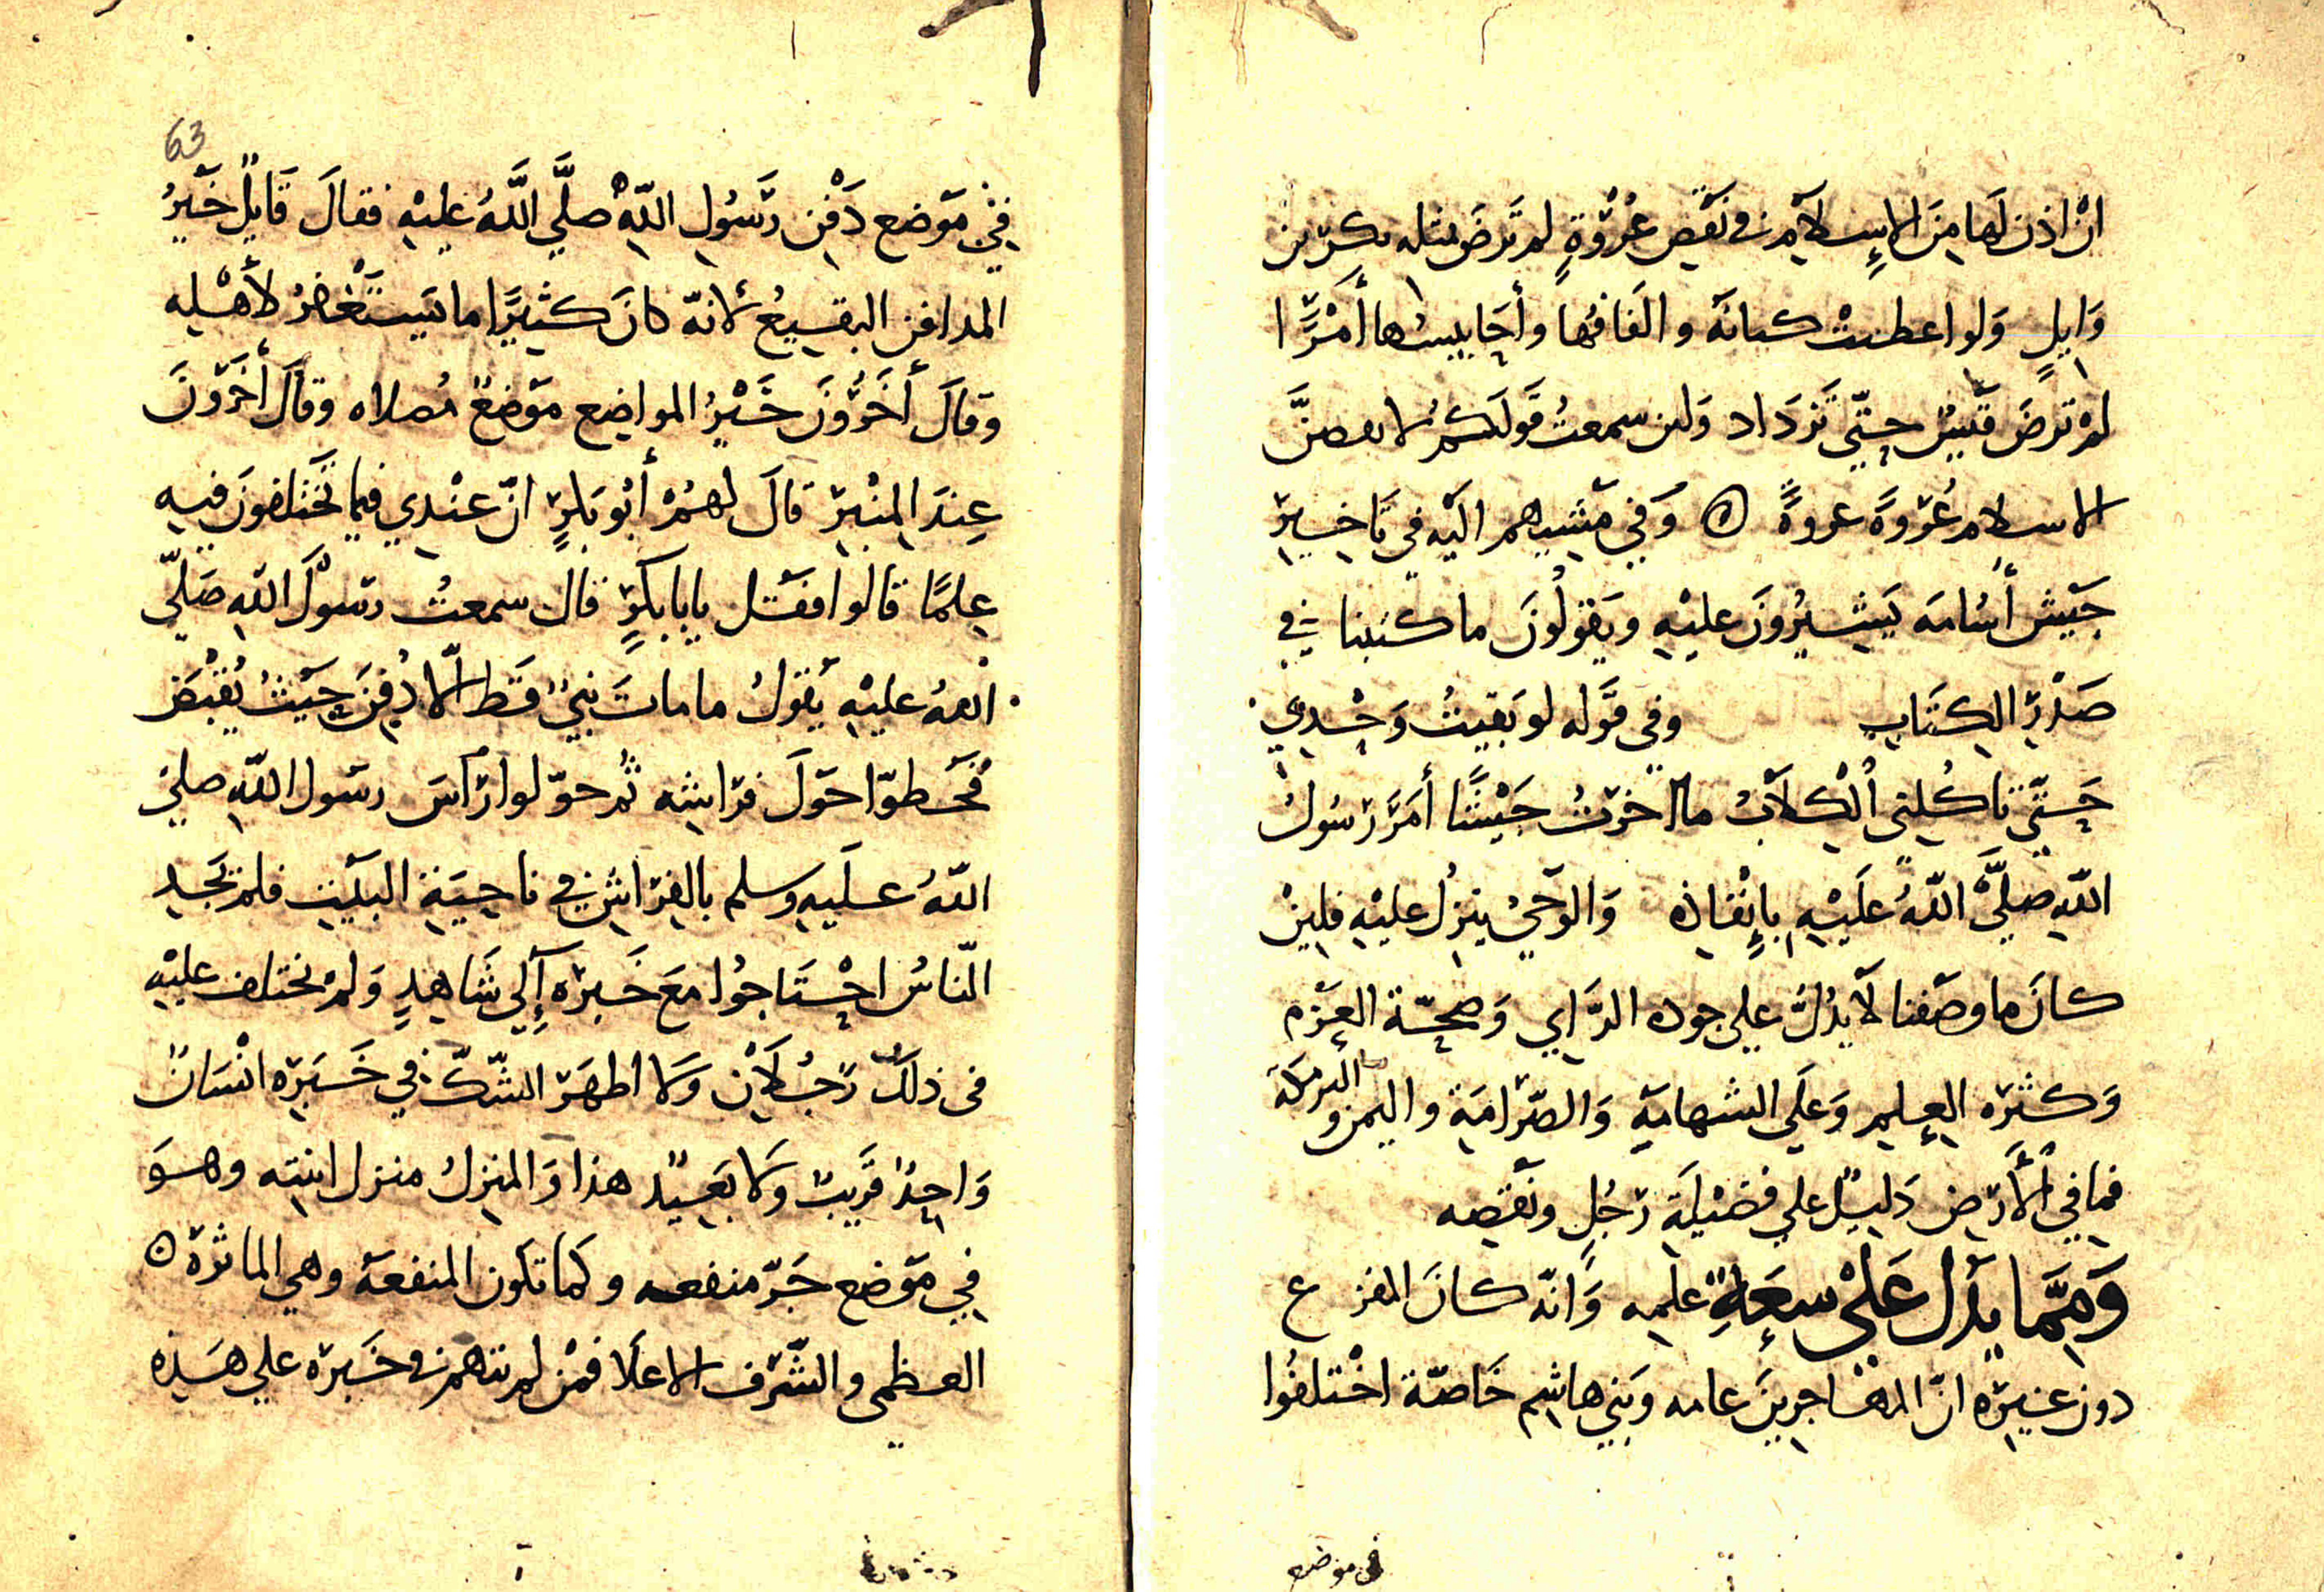 ان اذن لها من الإسلام في نقص عُرْوَةٍ لم ترض بمثله بكر بن
وَايلٍ وَلو اعطيتْ كنانَة والفَافُها وأحَابيشُها أمْرًا
لمْ ترضَ قَيْسٌ حتّي تَزدَاد وَلئن سمعتُ قَولَكمُ لانقصنَّ
الاسلام عُرْوةً عروةً ه وَفي مَشيهم اليْه في تَاخيرِ
جَيْش أسُامَه يَشيرُونَ عليْهِ ويَقولُونَ ما كتبنا في
صَدْرِ الكتَابِ وفي قَوله لو بَقيتُ وَحْدي
حَتّي تاكُلني الْكِلاَبُ ما اخرْتُ جَيْشًا أمَرَ رَسُولُ
اللّهِ صلَّي اللّهُ علَيْهِ بإِنْفَاذه وَالوَحْيُ ينزلُ عليْهِ فلِينْ
كانَ ما وصَفنا لاَ يدُلُّ علي جوده الرَّاي وَصحّة العَزْم
وَكثرَه العِلم وَعلَي الشهامَةِ وَالصّرَامَة واليمن والبركَة
فما في الْأَرْضِ دَليلٌ علي فضيْلَة رَجُلٍ ونَقصه
وَمِمَّا يَدُل عَلَى سِعَةِ علمِه وَانّه كانَ المفزع
دون غيْرِه انّ المهَاجرينَ عامه وَبَني هاشِم خَاصّة اخْتلفُوا
في موضع
63
في مَوْضع دَفْنِ رَسُولِ اللّهِ صلَّي اللَّهُ عليْهِ فقالَ قَايلٌ خَيْرُ
المدافن البقيعُ لانهّ كانَ كثيرًا ما يَسْتَغْفرُ لأَهْلِه
وَقالَ أخَرُونَ خَيْرُ المواضِع مَوْضعُ مُصلاه وقالَ أخَرُونَ
عِندَ المِنْبَرِ قالَ لهُمْ أبُو بَكرٍ انّ عنْدي فيما تَختلفونَ فيهِ
عِلمًا قالوا فقُل يابا بكْرٍ قال سمعتُ رسُولَ اللّهِ صَلّي
اللهُ عليْهِ يَقولُ ما ماتَ نبيٌّ قَط الاّ دُفنَ حَيْثُ يُقْبَض
فَخَطوّا حَولَ فرَاشِه ثُمَ حوّلوا رَأسَ رسَول اللّهِ صلي
اللّهُ علَيهِ وسلم بالفرَاش في ناحِيَة البَيْتِ فلم نجَد
النّاسُ احْتَاجُوا معَ خَبَرِه إلي شَاهدٍ وَلمْ يختلف عليْهِ
في ذلكَ رَجُلاَن وَلا اظهَرَ الشّكّ في خَبَرِه انْسَانٌ
وَاحِدٌ قَريبٌ وَلا بَعيدٌ هذا وَالمنزلُ منزل ابنتِه وهوَ
في مَوْضع جَرّ منفعه وكما تكون المنفعَة وهي الماثرة ه
العظمي والشّرَف الاعلَا فمَنْ لم يتهم في خبرَه علي هَذِه